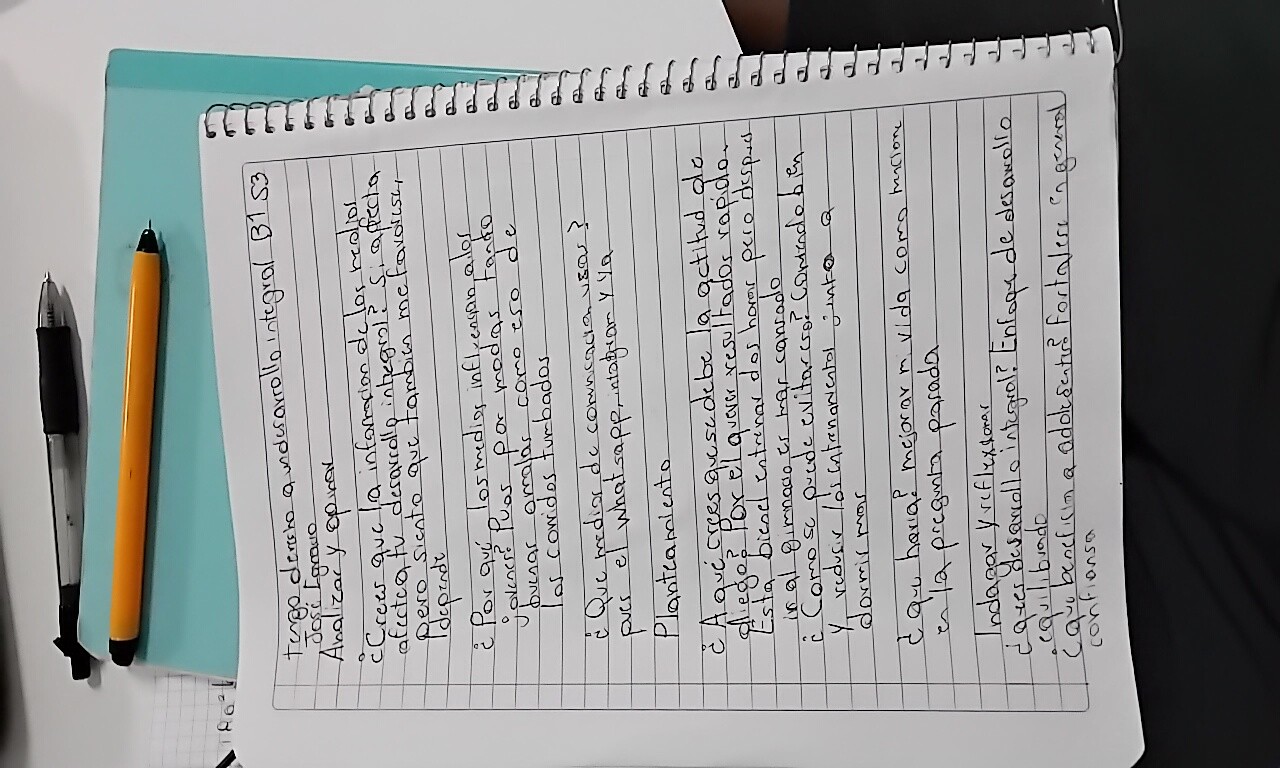 tengo derecho a un desarrollo integral B1 S3
José Egnavo
Analizar y opinar
¿Crees que la informacion de los medios
afecta a tu desarrollo integral? Si afecta
pero siento que tambien me favorese,
depende
¿Por qué los medios influensian a los
jovenes? Pues por modas tando
buenas o malas como eso de
los corridos tumbados
¿Que medios de comunicacion usas?
pues el Whatsapp, intagram y ya
Planteamiento
¿A qué crees que se debe la actitud de
diego? Por el querer resultados rapidos.
Esta bien el entrenar dos horas pero despues
in al gimnacio es mas cansado
¿Como se puede evitar eso? Comiendo bien
y reducir los entrenamientos junto a
dormir mas
¿que haria? mejorar mi vida como mucione
en la pregunta pasada
Indagar y reflexionar
¿que es desarrollo integral? Enfoque de desarrollo
equilibrado
¿que beneficia a adolesentes? Fortalese in general
confiansa